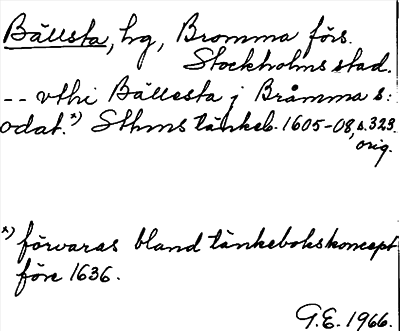 Bällsta, hg, Bromma förs.
Stockholms stad.
-- vthi Bällesta j Bråmma s:
odat.*) Sthms tänkeb. 1605-08, s. 323.
orig.
*) förvaras bland tänkebokskoncept
före 1636.
G.E. 1966.